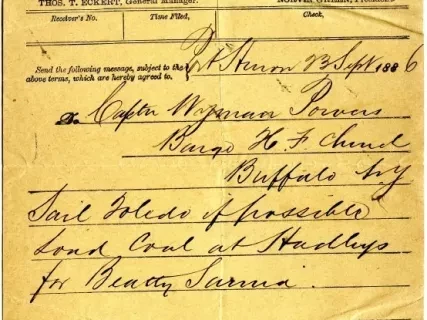 THOS. T. ECKERT, General Manager. NORVIN GREEN, President
Receiver's No. Time Filed, Check.
Send the following message, subject to the above terms, which are hereby agreed to.
Pt Huron 13 Sept 1886
To Captn Wyman Powers
Barge H. F. Church
Buffalo NY
Sail Toledo if possible
Load Coal at Hadleys
for Beatty Sarnia.